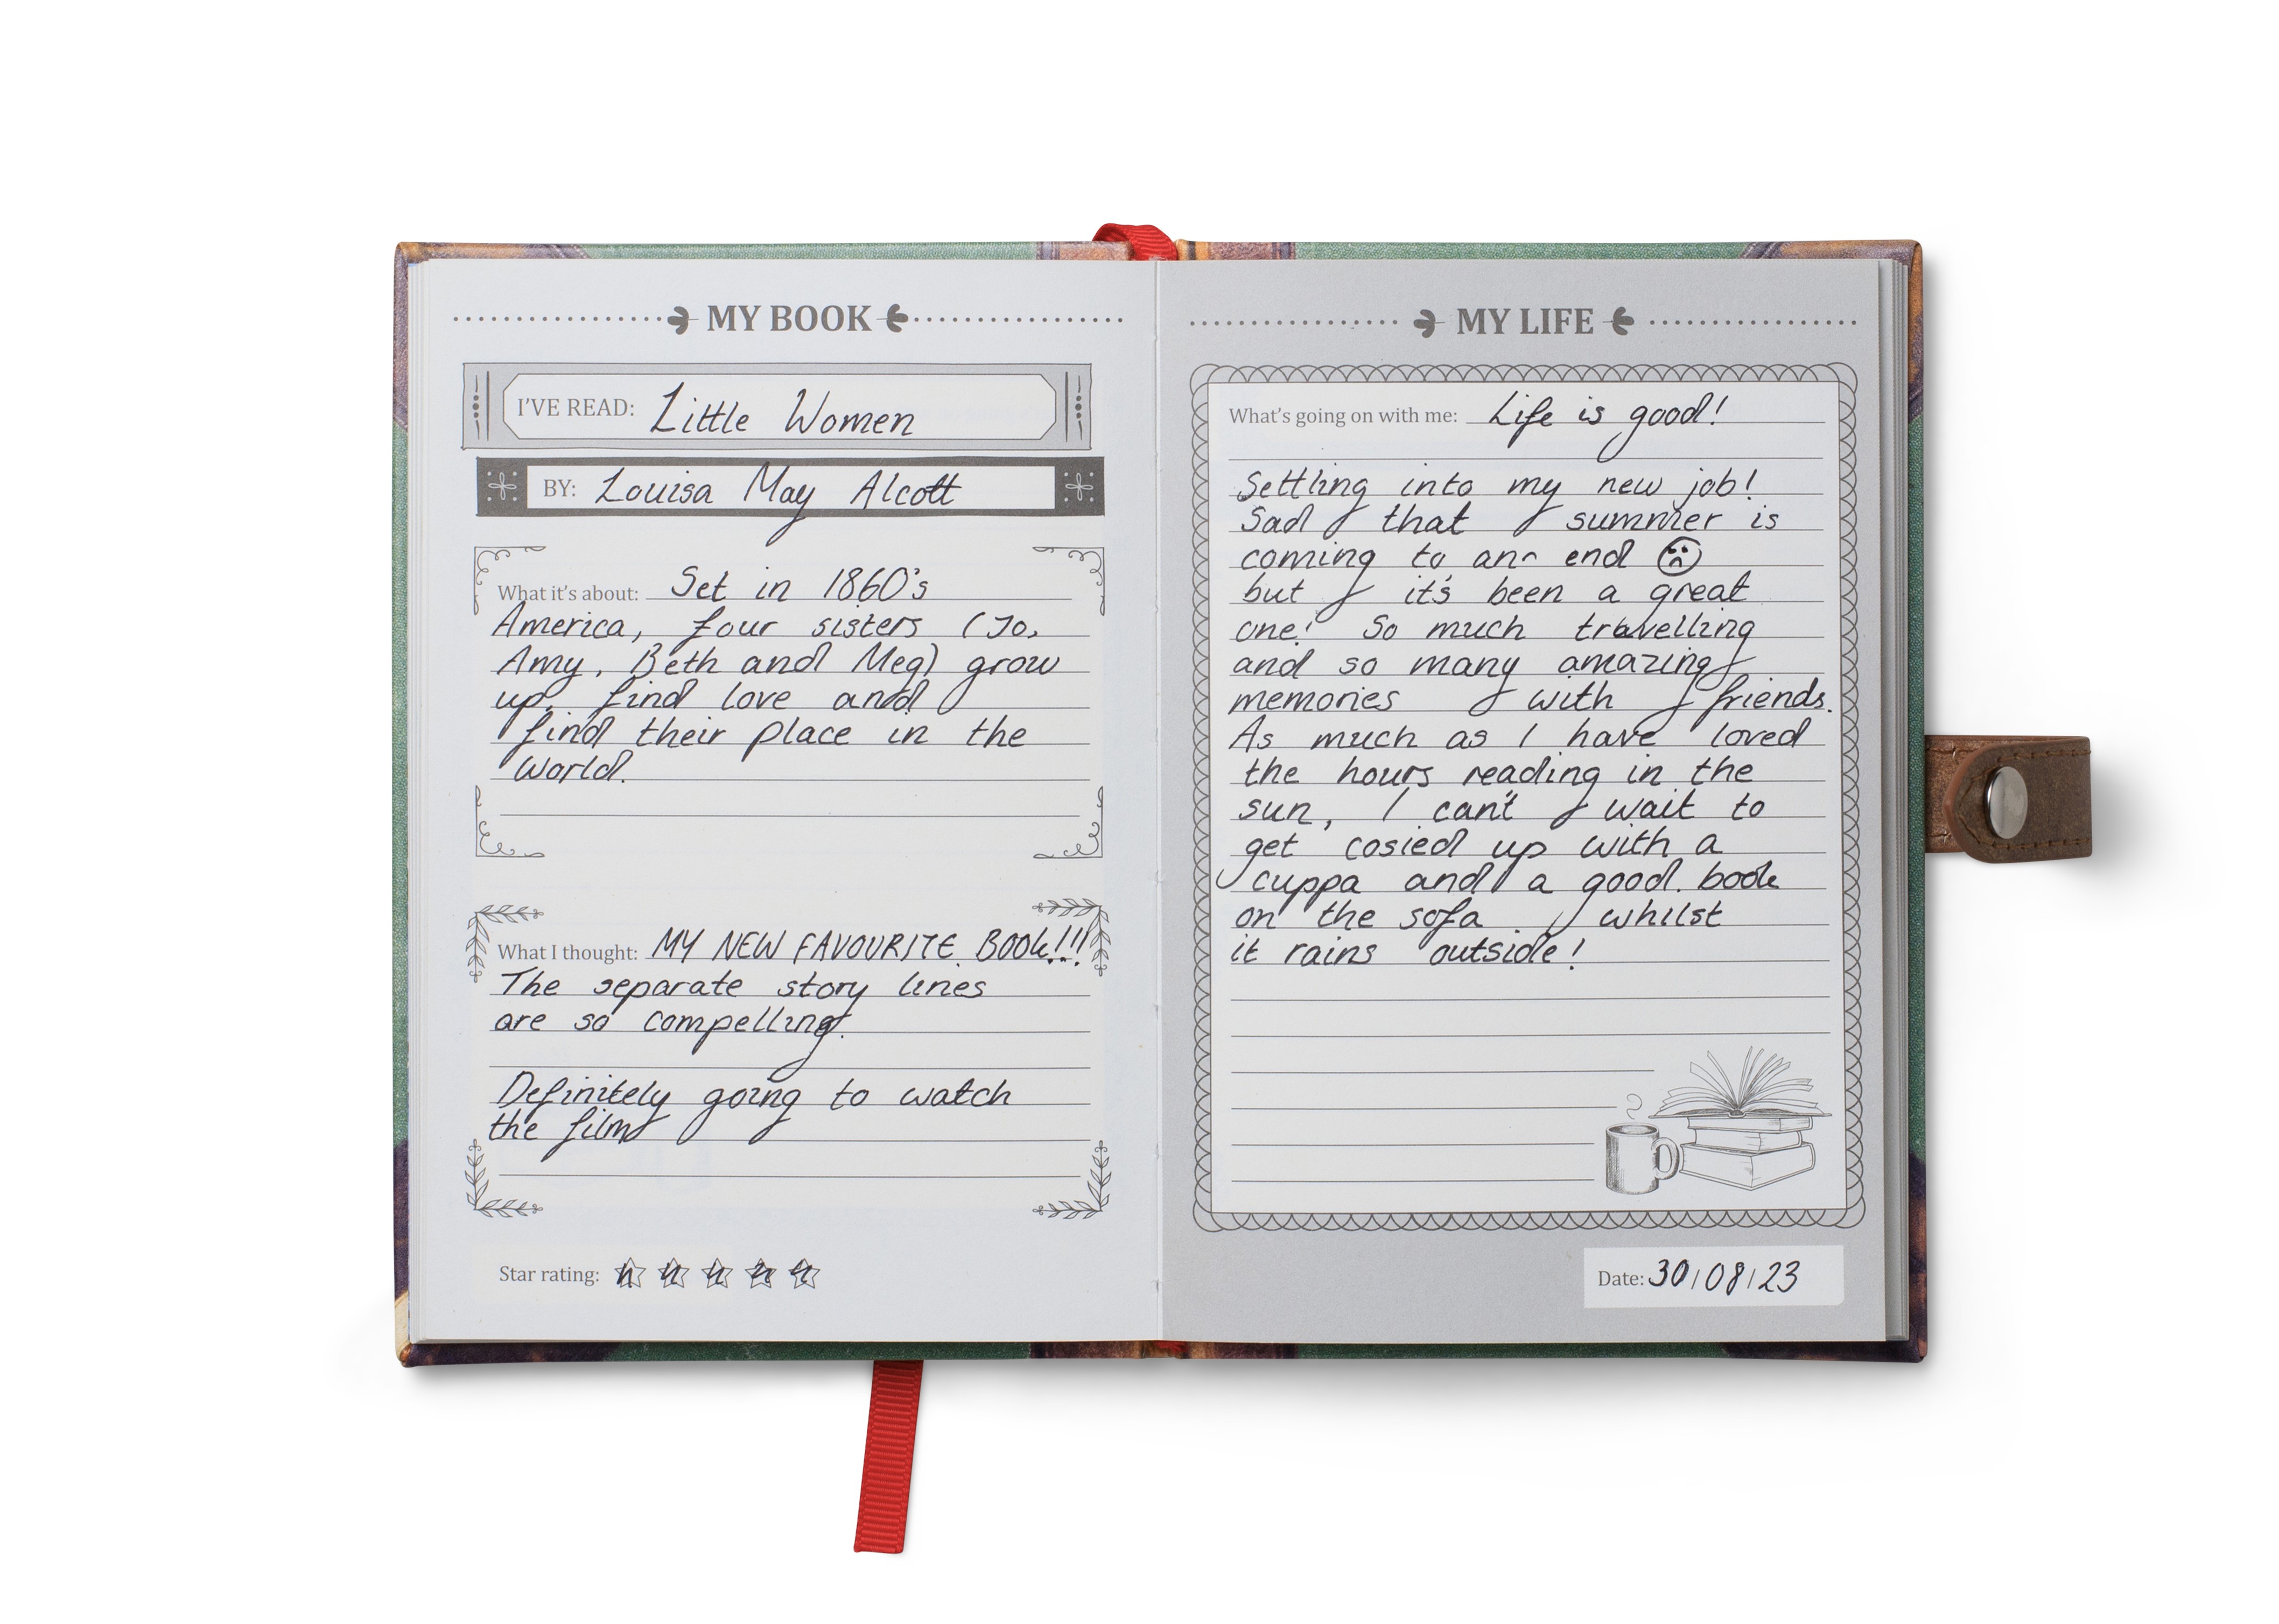 MY BOOK
I'VE READ: Little Women
BY: Louisa May Alcott
What it's about: Set in 1860's
America, four sisters (Jo,
Amy, Beth and Meg) grow
up, find love and
find their place in the
world.
What I thought: MY NEW FAVOURITE BOOK!!!
The separate story lines
are so compelling.
Definitely going to watch
the film
Star rating:
MY LIFE
What's going on with me: Life is good!
Settling into my new job!
Sad that summer is
coming to an end
but it's been a great
one! So much travelling
and so many amazing
memories with friends.
As much as I have loved
the hours reading in the
sun, I can't wait to
get cosied up with a
cuppa and a good book
on the sofa whilst
it rains outside!
Date: 30/08/23